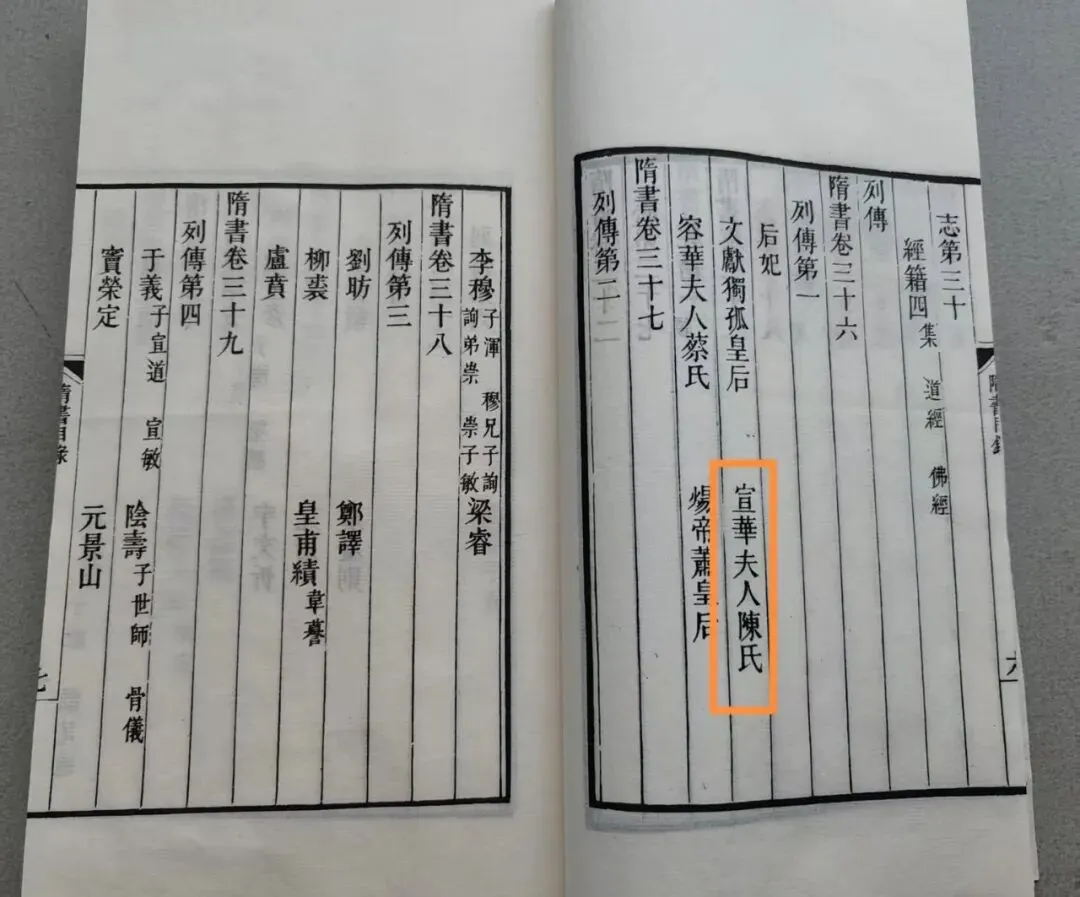 志第三十
經籍四 集 道經 佛經
列傳
隋書卷三十六
列傳第一
后妃
文獻獨孤皇后 宣華夫人陳氏
容華夫人蔡氏 煬帝蕭皇后
隋書卷三十七
列傳第二
李穆 子渾 穆兄子詢 詢弟崇 崇子敏 梁睿
隋書卷三十八
列傳第三
劉昉 鄭譯
柳裘 皇甫績 韋謩
盧賁
隋書卷三十九
列傳第四
于義 子宣道 宣敏 陰壽 子世師 骨儀
竇榮定 元景山
隋書目錄
七
隋書目錄
六